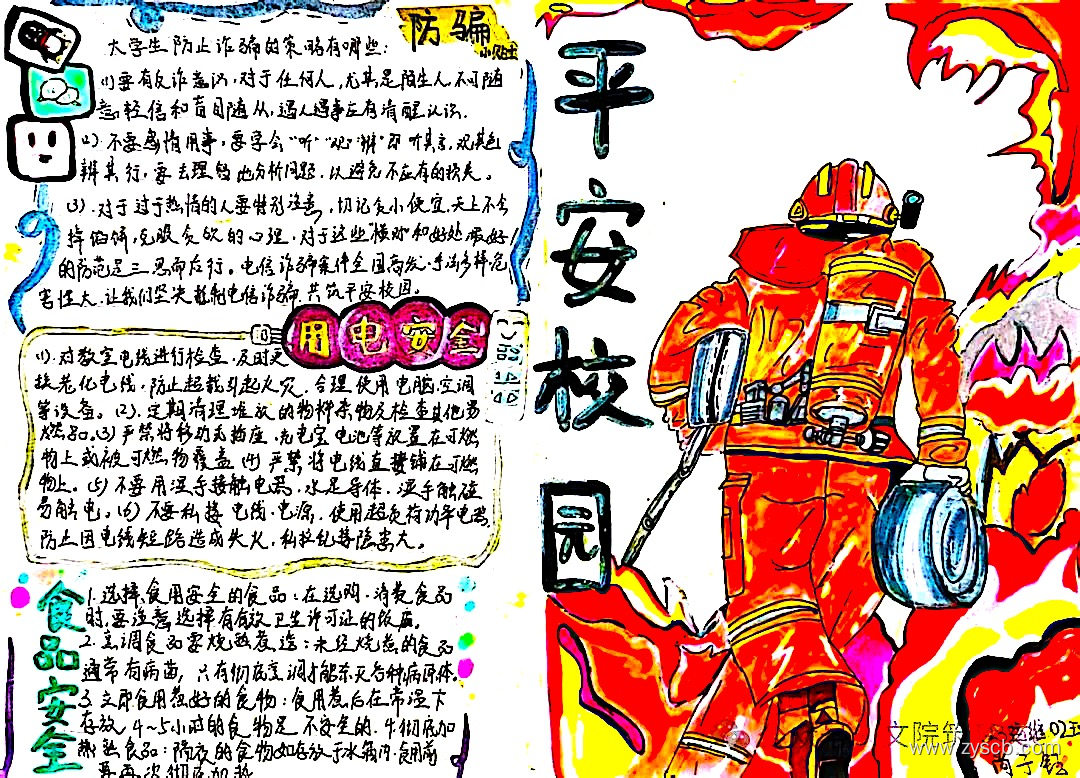 防骗
小贴士
大学生防止诈骗的策略有哪些:
(1)要有反诈意识,对于任何人,尤其是陌生人,不可随
意轻信和盲目随从,遇人遇事应有清醒认识.
(2).不要感情用事,要学会“听”“观”“辨”即听其言,观其色
辨其行,要去理智地分析问题,以避免不应有的损失。
(3).对于过于热情的人要特别注意,切记贪小便宜,天上不会
掉馅饼,克服贪欲的心理,对于这些
的防范是三思而后行。电信诈骗案件全国高发,手法多样危
害性大,让我们坚决抵制电信诈骗,共筑平安校园。
用电安全
(1).对教室电线进行检查,及时更
换老化电线,防止超载引起火灾,合理使用电脑空调
等设备。(2).定期清理堆放的物料杂物及检查其他易
燃品。(3)严禁将移动式插座,充电宝电池等放置在可燃
物上或被可燃物覆盖(4)严禁将电线直接铺在可燃
物上。(5)不要用湿手接触电器,水是导体,湿手触碰
易触电。(6)不要私接电线、电源,使用超负荷功率电器,
防止因电线短路造成失火,私拉乱接隐患大。
食品安全
1.选择食用安全的食品:在选购、消费食品
时,要注意选择有有效卫生许可证的饭店。
2.烹调食品要烧熟煮透:未经烧煮的食品
通常有病菌,只有彻底烹调才能杀灭各种病原体。
3.立即食用煮好的食物:食用煮后在常温下
存放4~5小时的食物是不安全的.4.彻底加
热熟食品:隔夜的食物如存放于冰箱内,食用前
要再次彻底加热
平安校园
文院筑
www.zyscb.com